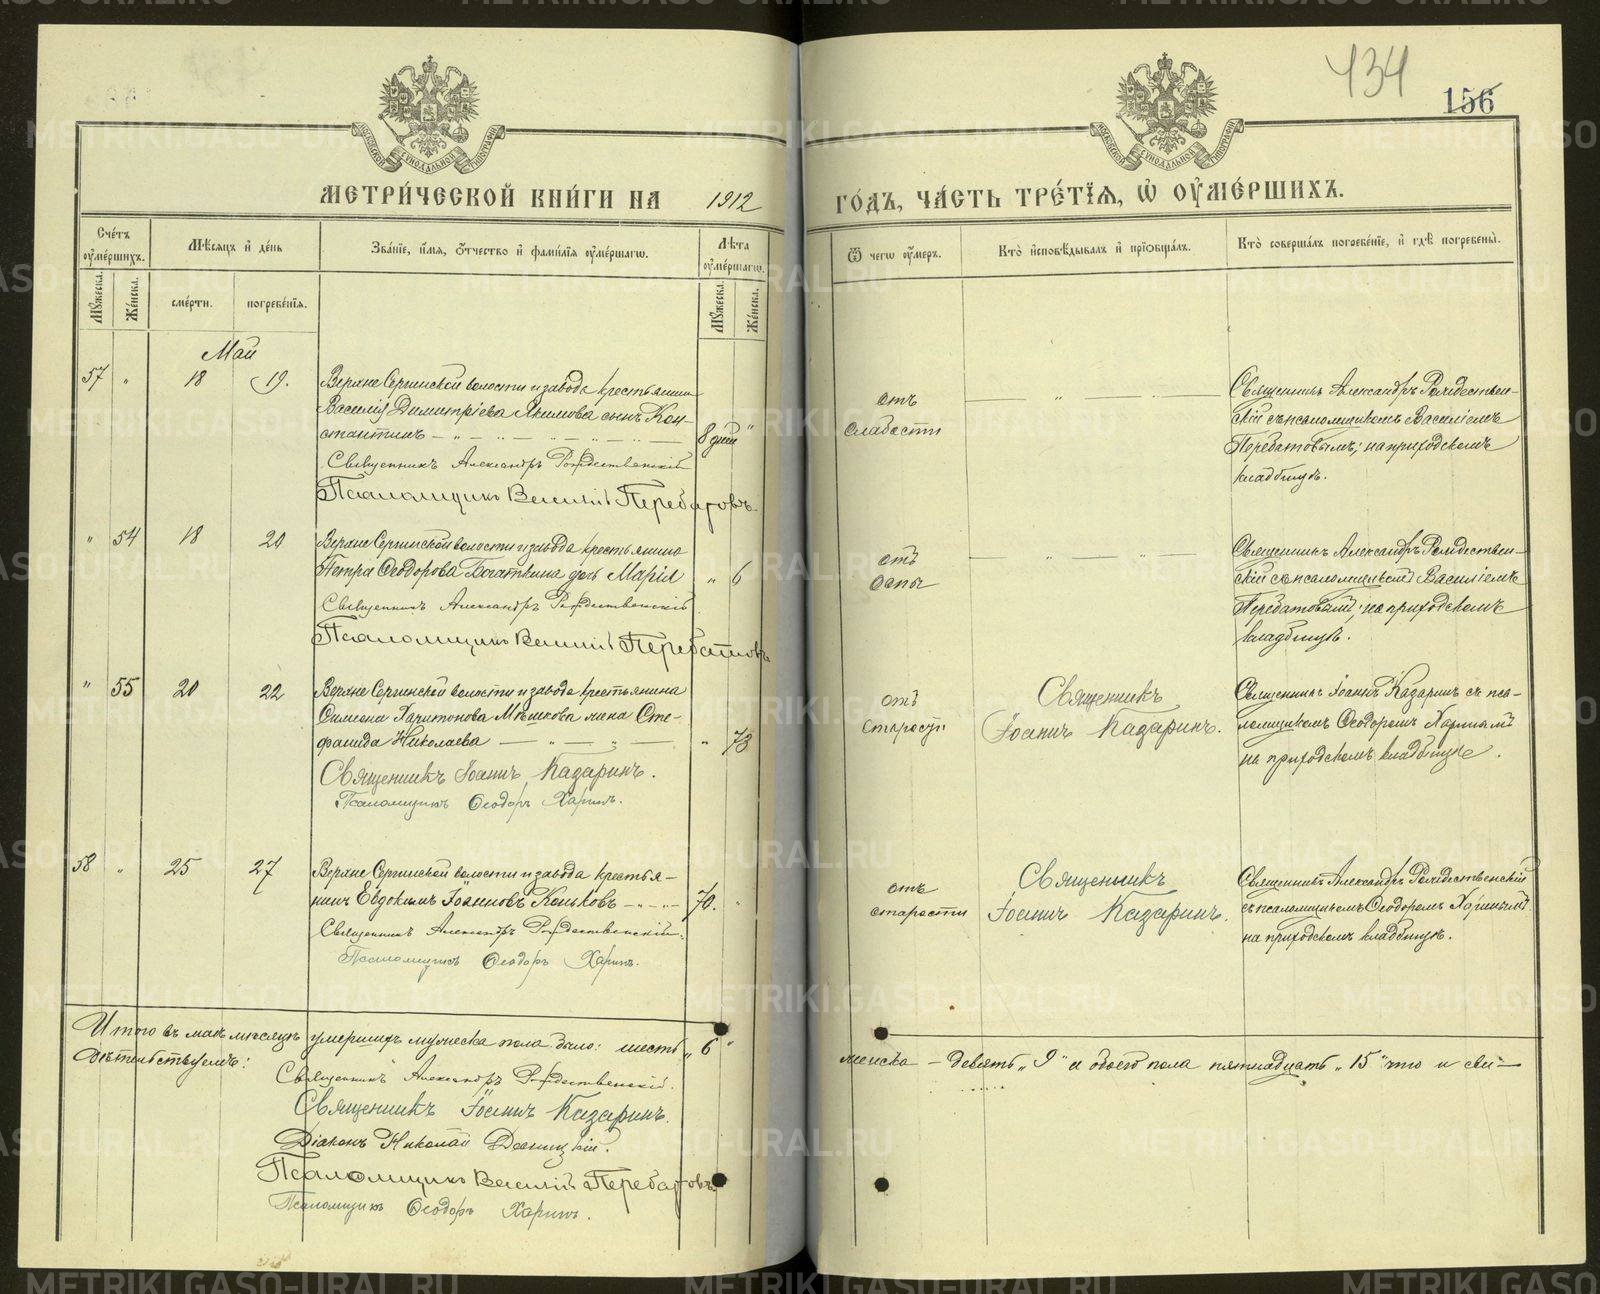 434
156
МОСКОВСКОЙ СѴНОДАЛЬНОЙ ТИПОГРАФІИ
МОСКОВСКОЙ СѴНОДАЛЬНОЙ ТИПОГРАФІИ
МЕТРИ́ЧЕСКОЙ КНИ́ГИ НА 1912 ГО́ДЪ, ЧА́СТЬ ТРЕ́ТЇѦ, Ѡ҆ ОУ҆МЕ́РШИХЪ.
Сче́тъ оу҆ме́ршихъ.
Мѣ́сяцъ и҆ де́нь
Зва́нїе, и҆́мѧ, ѻ҆́тчество и҆ фами́лїѧ оу҆ме́ршагѡ.
Лѣ́та оу҆ме́ршагѡ.
Ѿ чегѡ̀ оу҆́меръ.
Кто̀ и҆сповѣ́дывалъ и҆ прїѡбща́лъ.
Кто̀ соверша́лъ погребе́нїе, и҆ гдѣ̀ погребены̀.
Мꙋ́жеска.
Же́нска.
сме́рти.
погребе́нїѧ.
Мꙋ́жеска.
Же́нска.
Май
57 " 18 19.
Верхне Сергинской волости и завода крестьянина
Василія Димитріева Якимова сынъ Кон-
стантинъ — " — " — " — 8 дней "
Священникъ Александръ Рождественскій
Псаломщикъ Василій Перебатовъ
отъ
слабости
— " —
Священникъ Александръ Рождествен-
скій съ псаломщикомъ Василіемъ
Перебатовымъ; на приходскомъ
кладбищѣ.
" 54 18 20
Верхне Сергинской волости и завода крестьянина
Петра Ѳеодорова Богаткина дочь Марія " 6
Священникъ Александръ Рождественскій
Псаломщикъ Василій Перебатовъ
отъ
оспы
— " — " —
Священникъ Александръ Рождествен-
скій съ псаломщикомъ Василіемъ
Перебатовымъ; на приходскомъ
кладбищѣ.
" 55 20 22
Верхне Сергинской волости и завода крестьянина
Симеона Харитонова Мѣшкова жена Сте-
фанида Николаева — " — " — " 73
Священникъ Іоаннъ Казаринъ.
Псаломщикъ Ѳеодоръ Харинъ.
отъ
старости
Священникъ
Іоаннъ Казаринъ.
Священникъ Іоаннъ Казаринъ съ пса-
ломщикомъ Ѳеодоромъ Харинымъ
на приходскомъ кладбищѣ.
58 " 25 27
Верхне Сергинской волости и завода крестья-
нинъ Евдокимъ Іоанновъ Коньковъ — " — " — 70. "
Священникъ Александръ Рождественскій.
Псаломщикъ Ѳеодоръ Харинъ.
отъ
старости
Священникъ
Іоаннъ Казаринъ.
Священникъ Александръ Рождественскій
съ псаломщикомъ Ѳеодоромъ Харинымъ
на приходскомъ кладбищѣ.
Итого въ маѣ мѣсяцѣ умершихъ мужеска пола было: шесть „6"
женска — девять „9" и обоего пола пятнадцать „15" что и сви-
дѣтельствуемъ:
Священникъ Александръ Рождественскій.
Священникъ Іоаннъ Казаринъ.
Діаконъ Николай
Псаломщикъ Василій Перебатовъ
Псаломщикъ Ѳеодоръ Харинъ.
METRIKI.GASO-URAL.RU